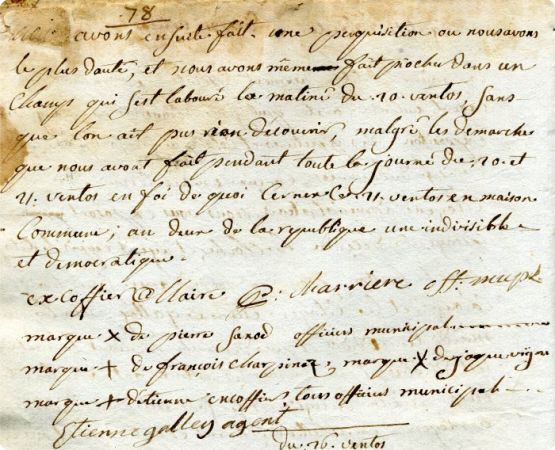 78
avons ensuite fait une perquisition ou nous avons
le plus daute, et nous avons meme fait piocher dans un
Champ qui sest labouré la matiné du 20 ventos, sans
que lon ait pus rien decouvrir, malgré les demarche
que nous avont fait pendant toute la journé du 20 et
21 ventos en foi de quoi Cerner Ce 21 ventos en maison
Commune, an deux de la republique une indivisible
et democratique.
excoffier maire Charriere off. mupl
marque X de pierre officiers municipal
marque + de françois Charpine, marque X de jaque
marque + detienne encoffier, tous officiers municipal
Etienne galley agent
du 26 ventos